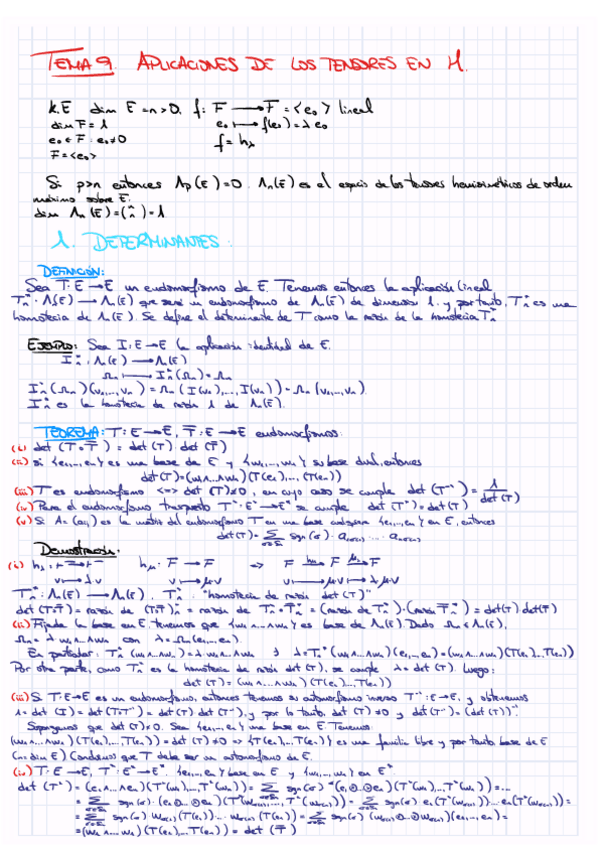 TEMA 9. APLICACIONES DE LOS TENSORES EN M.
k.E dim E = n > 0. f: F ⟶ F = <e₀> lineal
dim F = 1 e₀ ⟼ f(e₀) = λe₀
e₀ ∈ F : e₀ ≠ 0 f = h_λ
F = <e₀>
Si p>n entonces Λp(E) = 0. Λn(E) es el espacio de los tensores hemisimétricos de orden
máximo sobre E.
dim Λn(E) = (n n) = 1
1. DETERMINANTES:
DEFINICIÓN:
Sea T: E → E un endomorfismo de E. Tenemos entonces la aplicación lineal
Tn* : Λn(E) ⟶ Λn(E) que será un endomorfismo de Λn(E) de dimensión 1. y por tanto, Tn* es una
homotecia de Λn(E). Se define el determinante de T como la razón de la homotecia Tn*
EJEMPLO: Sea I: E → E la aplicación identidad de E.
In* : Λn(E) ⟶ Λn(E)
Ωn ⟼ In*(Ωn) = Ωn
In*(Ωn)(v₁,...,vn) = Ωn(I(v₁),...,I(vn)) = Ωn(v₁,...,vn)
In* es la homotecia de razón 1 de Λn(E).
TEOREMA: T: E → E, T̄: E → E endomorfismos.
(i) det(T∘T̄) = det(T)·det(T̄)
(ii) si {e₁,...,en} es una base de E y {w₁,...,wn} su base dual, entonces
det(T) = (w₁∧...∧wn)(T(e₁),...,T(en))
(iii) T es automorfismo <=> det(T) ≠ 0, en cuyo caso se cumple det(T⁻¹) = 1/det(T)
(iv) Para el endomorfismo traspuesto T*: E* → E* se cumple det(T*) = det(T)
(v) Si A = (aij) es la matriz del endomorfismo T en una base cualquiera {e₁,...,en} en E, entonces
Demostración:
(i) h_λ: F → F h_μ: F → F => F ⟶ F ⟶ F
v ⟼ λv v ⟼ μv v ⟼ μv ⟼ λμv
Tn* : Λn(E) ⟶ Λn(E), Tn* : "homotecia de razón det(T)"
(ii) Fijada la base en E, tenemos que {w₁∧...∧wn} es base de Λn(E). Dado Ωn ∈ Λn(E),
Ωn = λ w₁∧...∧wn con λ = Ωn(e₁,...,en).
En particular: Tn*(w₁∧...∧wn) = λ w₁∧...∧wn y λ = Tn*(w₁∧...∧wn)(e₁,...,en) = (w₁∧...∧wn)(T(e₁),...,T(en))
Por otra parte, como Tn* es la homotecia de razón det(T), se cumple λ = det(T). Luego:
det(T) = (w₁∧...∧wn)(T(e₁),...,T(en))
(iii) Si T: E → E es un automorfismo, entonces tenemos su automorfismo inverso T⁻¹: E → E, y obtenemos
1 = det(I) = det(T∘T⁻¹) = det(T) det(T⁻¹), y por lo tanto, det(T) ≠ 0 y det(T⁻¹) = (det(T))⁻¹.
Supongamos que det(T) ≠ 0. Sea {e₁,...,en} una base en E. Tenemos:
(w₁∧...∧wn)(T(e₁),...,T(en)) = det(T) ≠ 0 => {T(e₁),...,T(en)} es una familia libre y por tanto base de E
(n = dim E). Concluimos que T debe ser un automorfismo de E.
(iv) T: E → E, T*: E* → E*. {e₁,...,en} base en E y {w₁,...,wn} en E*.
= (w₁∧...∧wn)(T(e₁),...,T(en)) = det(T)